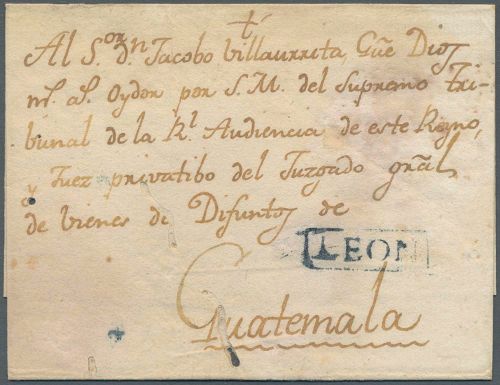 †
Al S.or d.n Jacobo Villaurrita, Gũe Dioſ
m.s a.s Oydor por S. M. del Supremo Tri-
bunal de la R.l Audiencia de este Reyno,
y Juez privatibo del Juzgado grãl
de bienes de Difuntoſ de
LEON
Guatemala